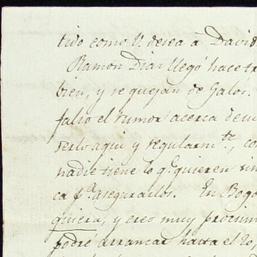 tido como V. desea á David
Ramon Diaz llegó hace tr
bien, y se quejan de Galos.
falso el rumor acerca de
serlo aqui y regularm.te, co
nadie tiene lo q.e quieren sin
ca p.a asegurarlos. En Bogo
quiera, y creo muy
podré arrancar hasta el 20,